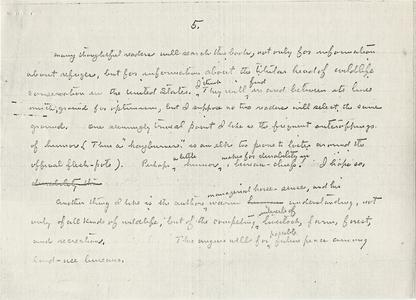 5.
many thoughtful readers will search this book, not only for information
about refuges, but for information about the titular head of wildlife
conservation in the United States. I think They will find in and between its lines
much ground for optimism, but I suppose no two readers will select the same
grounds. One seemingly trivial point I like is the frequent outcroppings
of humor (Thus a " is an elk too prone to loiter around the
official ). Perhaps a little humor, makes for durability in bureau-chiefs? I hope so.
durability in
Another thing I like is the author's warm managerial horse-sense, and his understanding, not
only of all kinds of wildlife, but of the competing levels of livestock, farm, forest,
and recreation. This augurs well for possible future peace among
land-use bureaus.